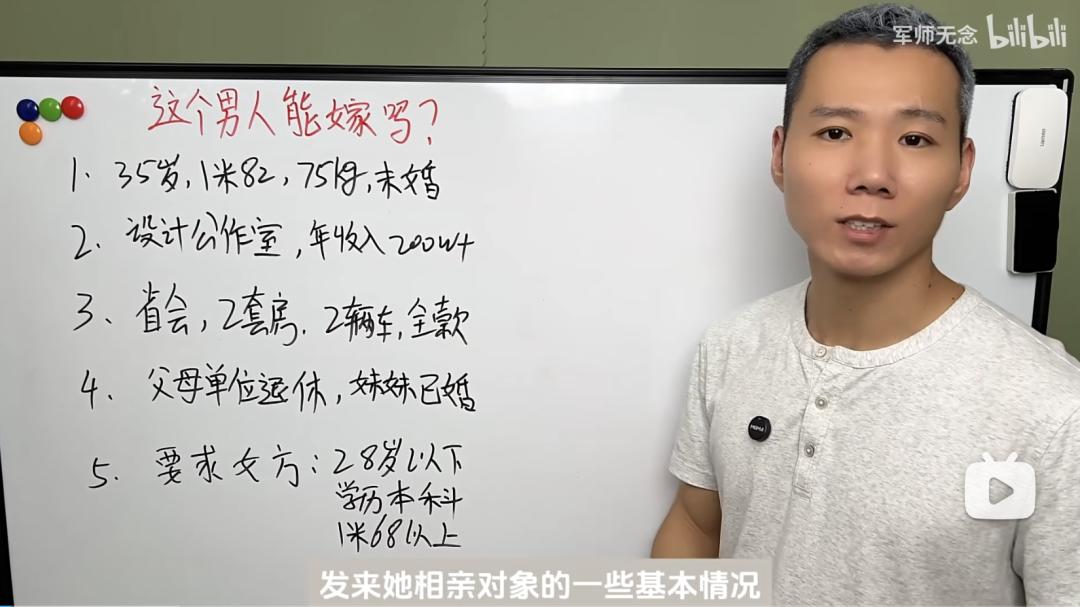 军师无念 bilibili
这个男人能嫁吗?
1. 35岁,1米82,75kg,未婚
2. 设计公作室,年收入200W+
3、省会,2套房,2辆车,全款
4、父母单位退休,妹妹已婚
5、要求女方:28岁以下
学历本科
1米68以上
发来她相亲对象的一些基本情况